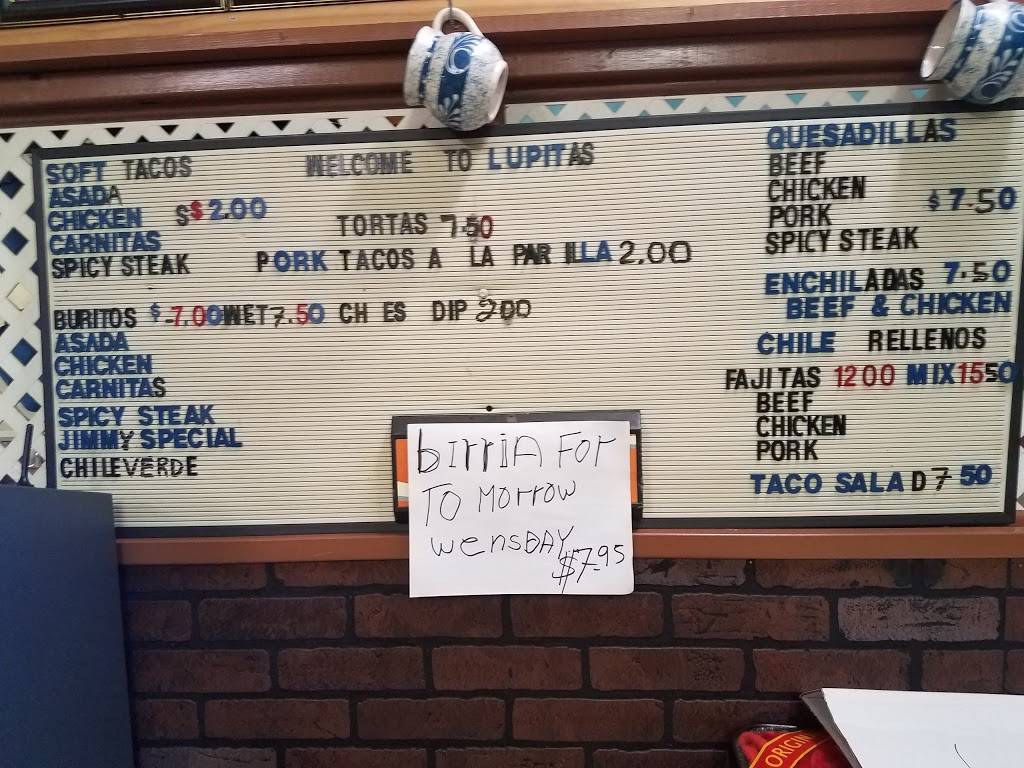 WELCOME TO LUPITAS
SOFT TACOS
ASADA
CHICKEN S$2.00
CARNITAS
SPICY STEAK
TORTAS 7.50
PORK TACOS A LA PAR ILLA 2.00
BURITOS $-7.00 WET 7.50 CH ES DIP 200
ASADA
CHICKEN
CARNITAS
SPICY STEAK
JIMMY SPECIAL
CHILE VERDE
QUESADILLAS
BEEF
CHICKEN $7.50
PORK
SPICY STEAK
ENCHILADAS 7.50
BEEF & CHICKEN
CHILE RELLENOS
FAJITAS 1200 MIX 1550
BEEF
CHICKEN
PORK
TACO SALAD 7 50
birriA For
To Morrow
WensDAY
$7.95
ORIGIN